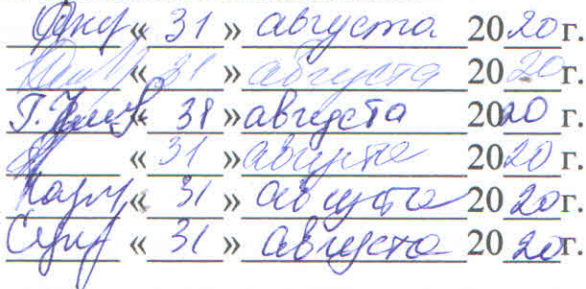 « 31 » августа 20 20 г.
« 31 » августа 20 20 г.
« 31 » августа 20 20 г.
« 31 » августа 20 20 г.
« 31 » августа 20 20 г.
« 31 » августа 20 20 г.